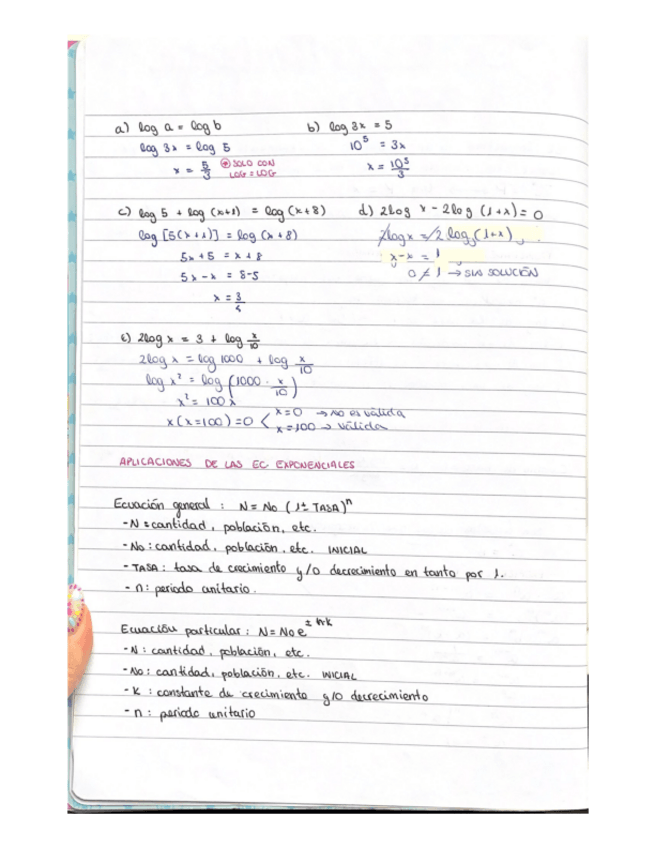 a) log a = log b
log 3x = log 5
x = 5/3
⊕ SOLO CON
LOG = LOG
b) log 3x = 5
10^5 = 3x
x = 10^5/3
c) log 5 + log (x+1) = log (x+8)
log [5(x+1)] = log (x+8)
5x+5 = x+8
5x-x = 8-5
x = 3/4
d) 2log x - 2log (1+x) = 0
2log x = 2log (1+x)
x-x = 1
0 ≠ 1 → SIN SOLUCIÓN
e) 2log x = 3 + log x/10
2log x = log 1000 + log x/10
log x² = log (1000 · x/10)
x² = 100x
x(x=100)=0 < x=0 → no es válida
x=100 → válida
APLICACIONES DE LAS EC EXPONENCIALES
Ecuación general : N = No (1± TASA)^n
- N = cantidad, población, etc.
- No : cantidad, población, etc. INICIAL
- TASA : tasa de crecimiento y/o decrecimiento en tanto por 1.
- n : periodo unitario.
Ecuación particular : N = No e^± n·k
- N : cantidad, población, etc.
- No : cantidad, población, etc. INICIAL
- K : constante de crecimiento y/o decrecimiento
- n : periodo unitario